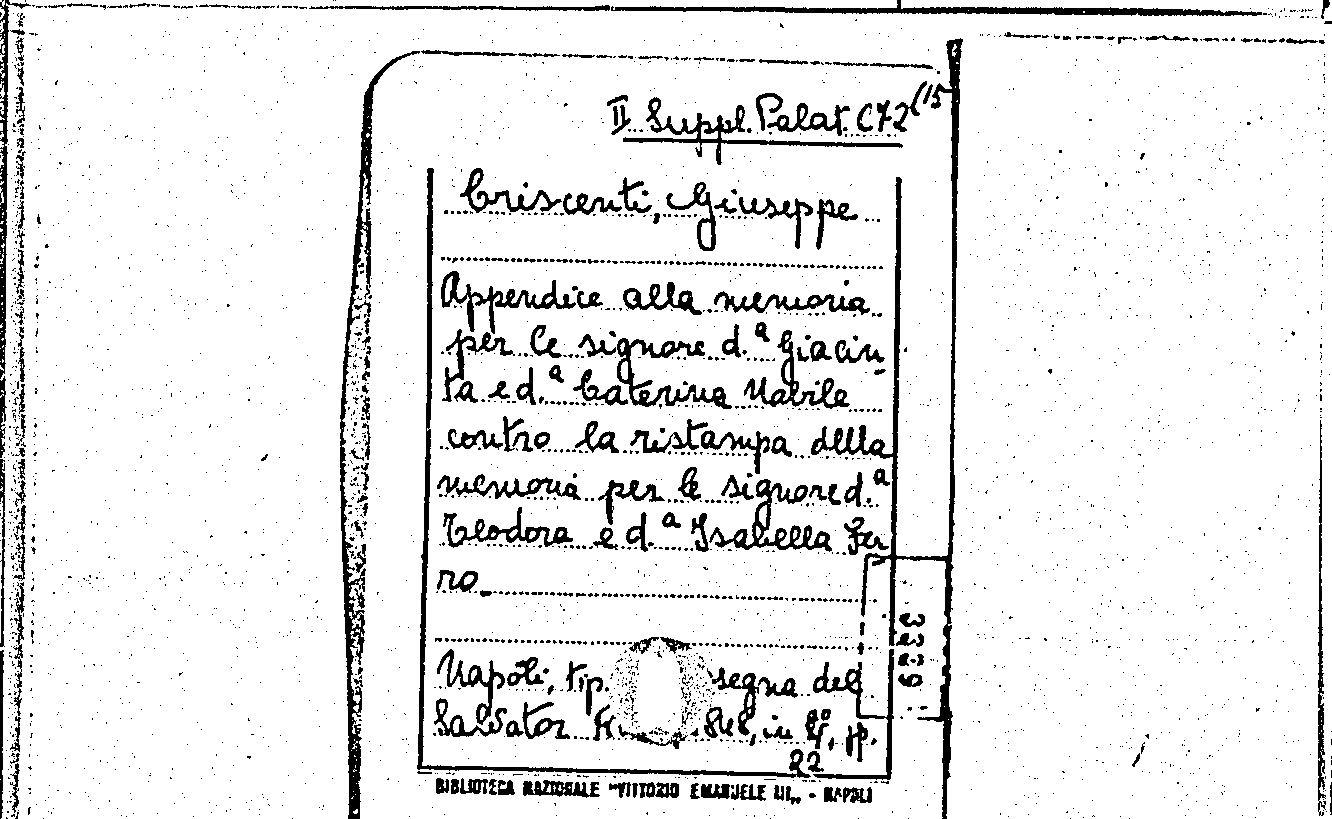 II Suppl. Palat. C72(15
Criscenti, Giuseppe
Appendice alla memoria
per le signore d.ª Giacin
ta e d.ª Caterina Nobile
contro la ristampa della
memoria per le signore d.ª
Teodora e d.ª Isabella Fer
ro.
Napoli, tip. segna del
Salvator in 4º, pp.
22
BIBLIOTECA NAZIONALE "VITTORIO EMANUELE III„ - NAPOLI